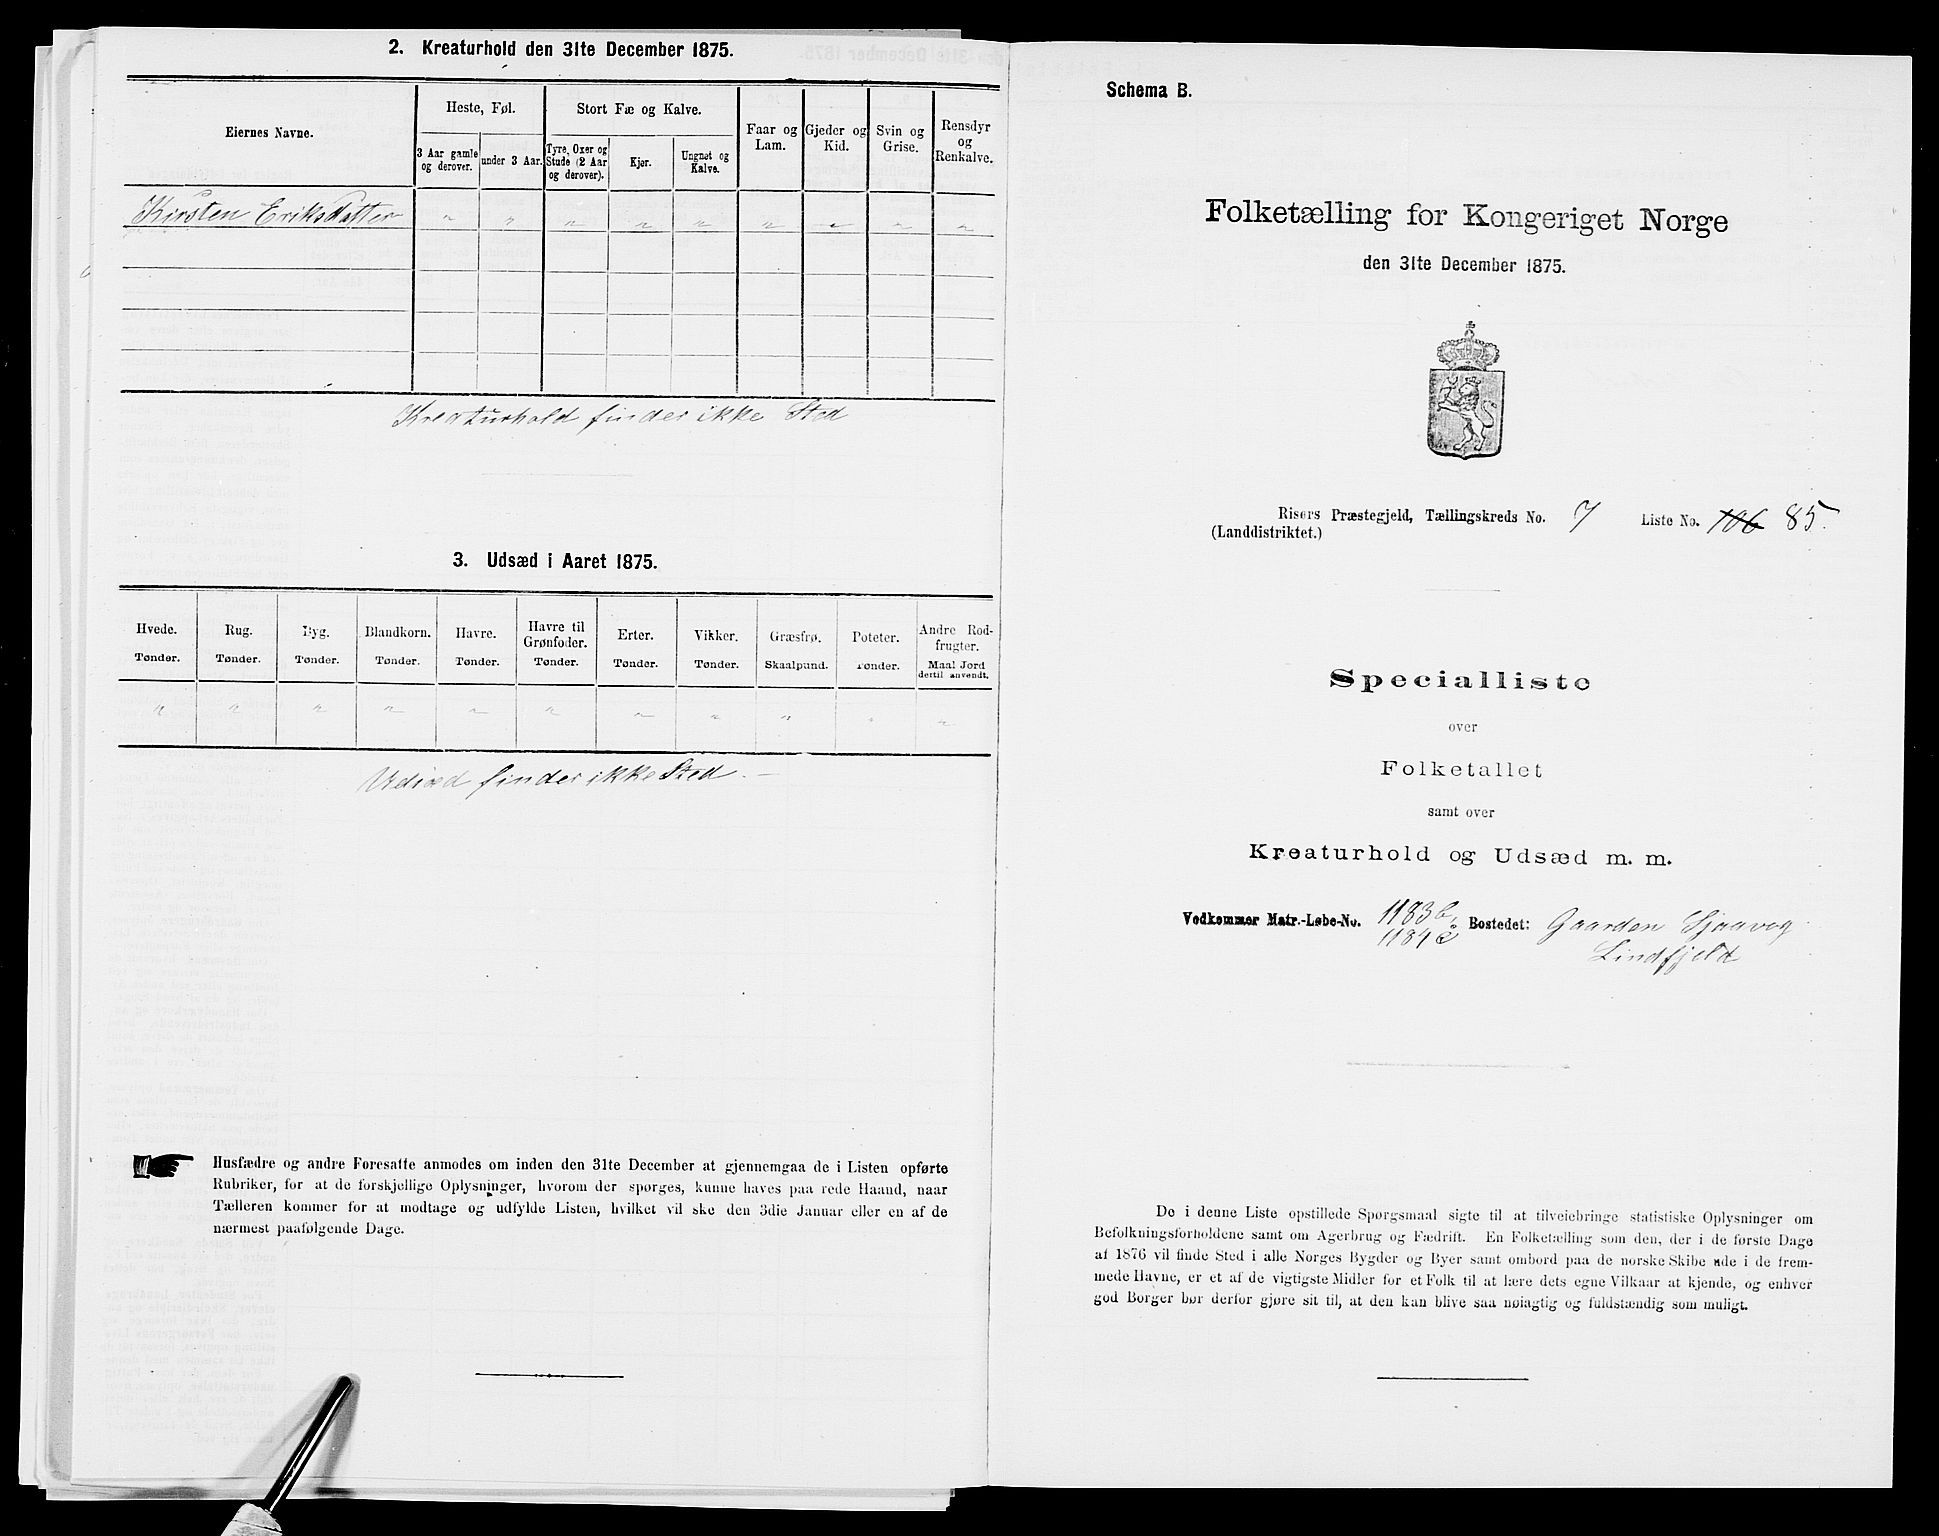 2. Kreaturhold den 31te December 1875.
Eiernes Navne.
Heste, Føl.
Stort Fæ og Kalve.
Faar og Lam.
Gjeder og Kid.
Svin og Grise.
Rensdyr og Renkalve.
3 Aar gamle og derover.
under 3 Aar.
Tyre, Oxer og Stude (2 Aar og derover).
Kjør.
Ungnøt og Kalve.
Kirsten Eriksdatter " " " " " " " " "
Kreaturhold finder ikke Sted
3. Udsæd i Aaret 1875.
Hvede. Rug. Byg. Blandkorn. Havre. Havre til Grønfoder. Erter. Vikker. Græsfrø. Poteter. Andre Rodfrugter.
Tønder. Tønder. Tønder. Tønder. Tønder. Tønder. Tønder. Tønder. Skaalpund. Tønder. Maal Jord dertil anvendt.
" " " " " " " " " " "
Udsæd finder ikke Sted. —
Husfædre og andre Foresatte anmodes om inden den 31te December at gjennemgaa de i Listen opførte
Rubriker, for at de forskjellige Oplysninger, hvorom der spørges, kunne haves paa rede Haand, naar
Tælleren kommer for at modtage og udfylde Listen, hvilket vil ske den 3die Januar eller en af de
nærmest paafølgende Dage.
Schema B.
Folketælling for Kongeriget Norge
den 31te December 1875.
Risørs Præstegjeld, Tællingskreds No. 7 Liste No. 106 85.
(Landdistriktet.)
Specialliste
over
Folketallet
samt over
Kreaturhold og Udsæd m. m.
Vedkommer Matr.-Løbe-No. 1183b, Bostedet: Gaarden Sjaavog
1184 Lindfjeld
De i denne Liste opstillede Spørgsmaal sigte til at tilveiebringe statistiske Oplysninger om
Befolkningsforholdene samt om Agerbrug og Fædrift. En Folketælling som den, der i de første Dage
af 1876 vil finde Sted i alle Norges Bygder og Byer samt ombord paa de norske Skibe ude i de frem-
mede Havne, er et af de vigtigste Midler for et Folk til at lære dets egne Vilkaar at kjende, og enhver
god Borger bør derfor gjøre sit til, at den kan blive saa nøiagtig og fuldstændig som muligt.